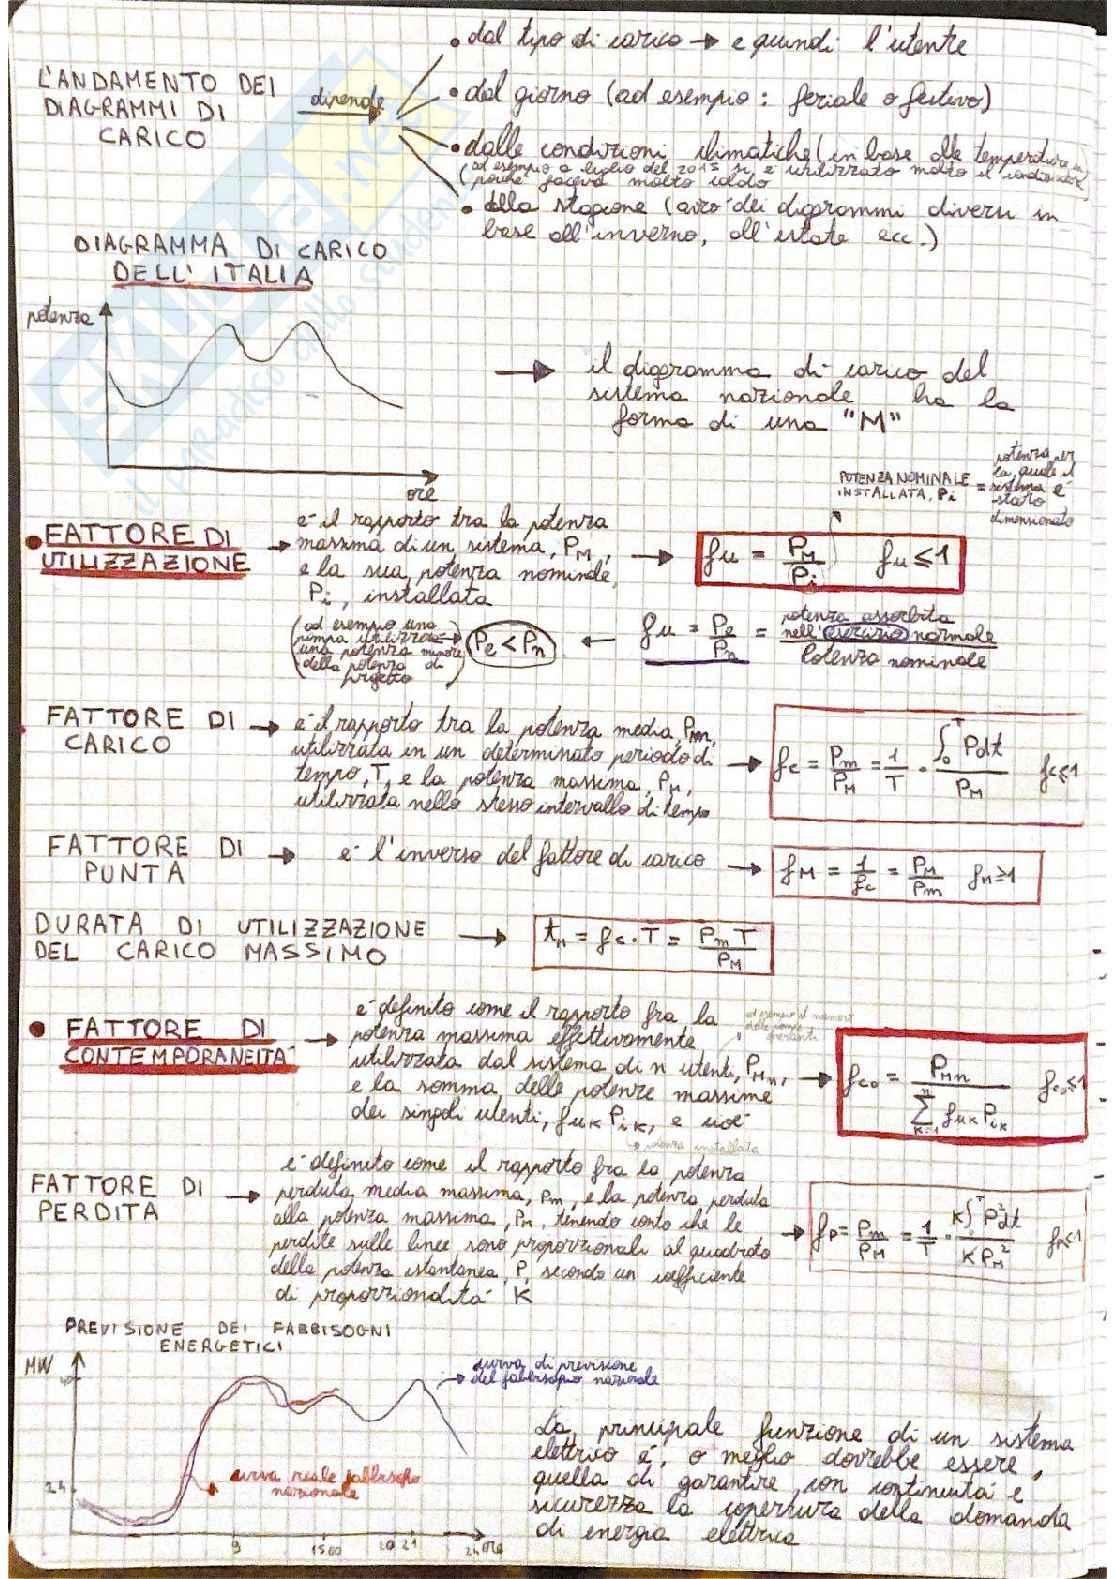 • dal tipo di carico → e quindi l'utente
L'ANDAMENTO DEI
DIAGRAMMI DI
CARICO
dipende
• dal giorno (ad esempio: feriale o festivo)
• dalle condizioni climatiche (in base alle temperature)
(ad esempio a luglio del 2015 si è utilizzato molto il condizionatore
poiché faceva molto caldo
• dalla stagione (avrò dei digrammi diversi in
base all'inverno, all'estate ecc.)
DIAGRAMMA DI CARICO
DELL'ITALIA
potenza
ore
→ il digramma di carico del
sistema nazionale ha la
forma di una "M"
POTENZA NOMINALE
INSTALLATA, Pi
= potenza per
la quale il
sistema è
stato
dimensionato
• FATTORE DI
UTILIZZAZIONE
→ è il rapporto tra la potenza
massima di un sistema, PM,
e la sua potenza nominale,
Pi, installata
→ fu = PM/Pi fu ≤ 1
(ad esempio una
pompa utilizzerà
una potenza minore
della potenza di
progetto)
→ Pe < Pn
← fu = Pe/Pn = potenza assorbita
nell'esercizio normale
Potenza nominale
FATTORE DI
CARICO
→ è il rapporto tra la potenza media, Pm,
utilizzata in un determinato periodo di
tempo, T, e la potenza massima, PM,
utilizzata nello stesso intervallo di tempo
→ fc = Pm/PM = 1/T · ∫₀ᵀ Pdt / PM fc ≤ 1
FATTORE DI
PUNTA
→ è l'inverso del fattore di carico
→ fM = 1/fc = PM/Pm fM ≥ 1
DURATA DI UTILIZZAZIONE
DEL CARICO MASSIMO
→ tM = fc · T = Pm T / PM
• FATTORE DI
CONTEMPORANEITÀ
→ è definito come il rapporto fra la
potenza massima effettivamente
utilizzata dal sistema di n utenti, PMn,
e la somma delle potenze massime
dei singoli utenti, fuK PiK, e cioè
potenza installata
→ fco = PMn / Σ K=1 n fuK PiK fco ≤ 1
FATTORE DI
PERDITA
→ è definito come il rapporto fra la potenza
perduta media massima, pm, e la potenza perduta
alla potenza massima, pM, tenendo conto che le
perdite sulle linee sono proporzionali al quadrato
della potenza istantanea, P, secondo un coefficiente
di proporzionalità K
→ fp = pm/pM = 1/T · K∫ᵀ P²dt / K PM²
PREVISIONE DEI FABBISOGNI
ENERGETICI
MW
→ curva di previsione
del fabbisogno nazionale
curva reale fabbisogno
nazionale
24
9
1500
20 21
24 ore
La principale funzione di un sistema
elettrico è, o meglio dovrebbe essere,
quella di garantire con continuità e
sicurezza la copertura della domanda
di energia elettrica